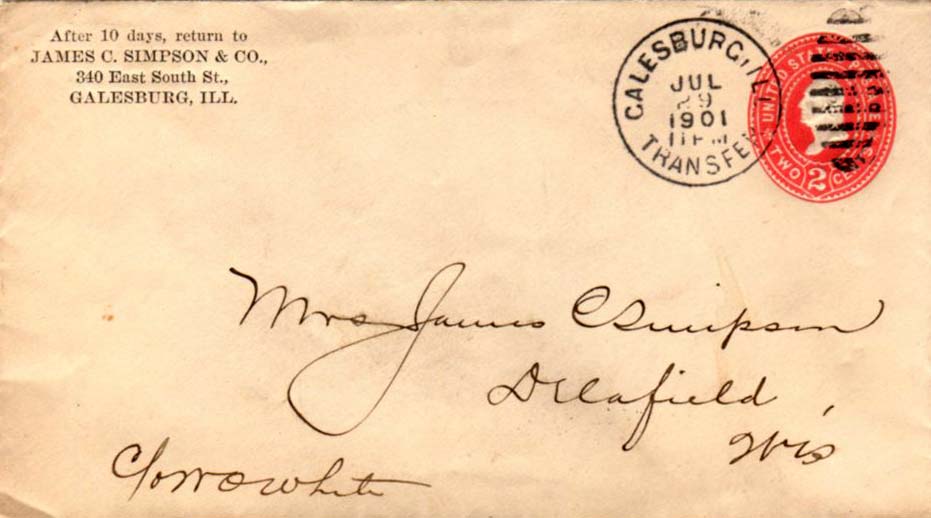 After 10 days, return to
JAMES C. SIMPSON & CO.,
340 East South St.,
GALESBURG, ILL.
GALESBURG, ILL
JUL
29
1901
11 PM
TRANSFER
UNITED STATES POSTAGE
TWO 2 CENTS
Mrs James C Simpson
Delafield,
Wis
C/o W C White